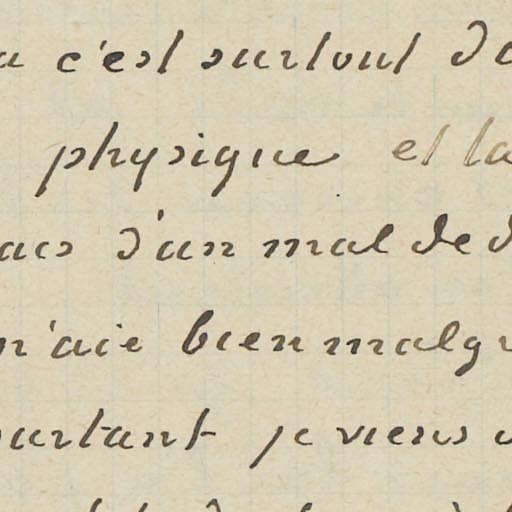 c'est surtout
physique et la
d'un mal de d
n'aie bien malgr
pourtant je viens